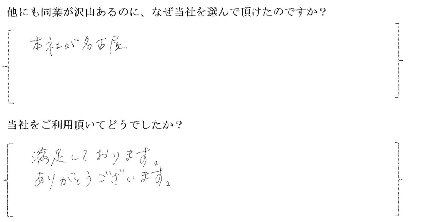 他にも同業が沢山あるのに、なぜ当社を選んで頂けたのですか？
本社が名古屋
当社をご利用頂いてどうでしたか？
満足しております。
ありがとうございます。